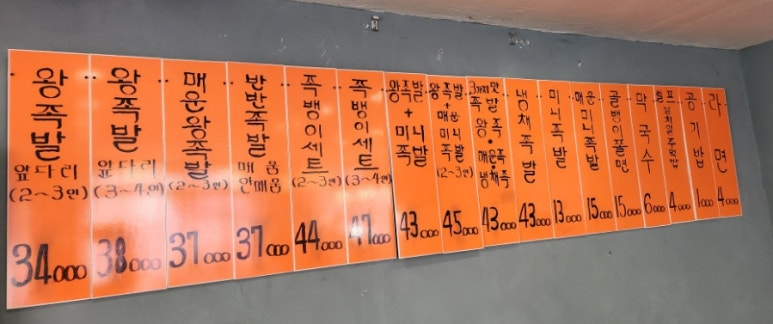 왕족발
앞다리
(2~3인)
34,000
왕족발
앞다리
(3~4인)
38,000
매운왕족발
(2~3인)
37,000
반반족발
매움
안매움
37,000
족뱅이세트
(2~3인)
44,000
족뱅이세트
(3~4인)
47,000
왕족발
+
미니족발
43,000
왕족발
+
매운미니족발
(2~3인)
45,000
3가지맛족발
왕족
매운족
냉채족
43,000
냉채족발
43,000
미니족발
13,000
매운미니족발
15,000
골뱅이쫄면
15,000
막국수
6,000
주먹밥
4,000
공기밥
1,000
라면
4,000